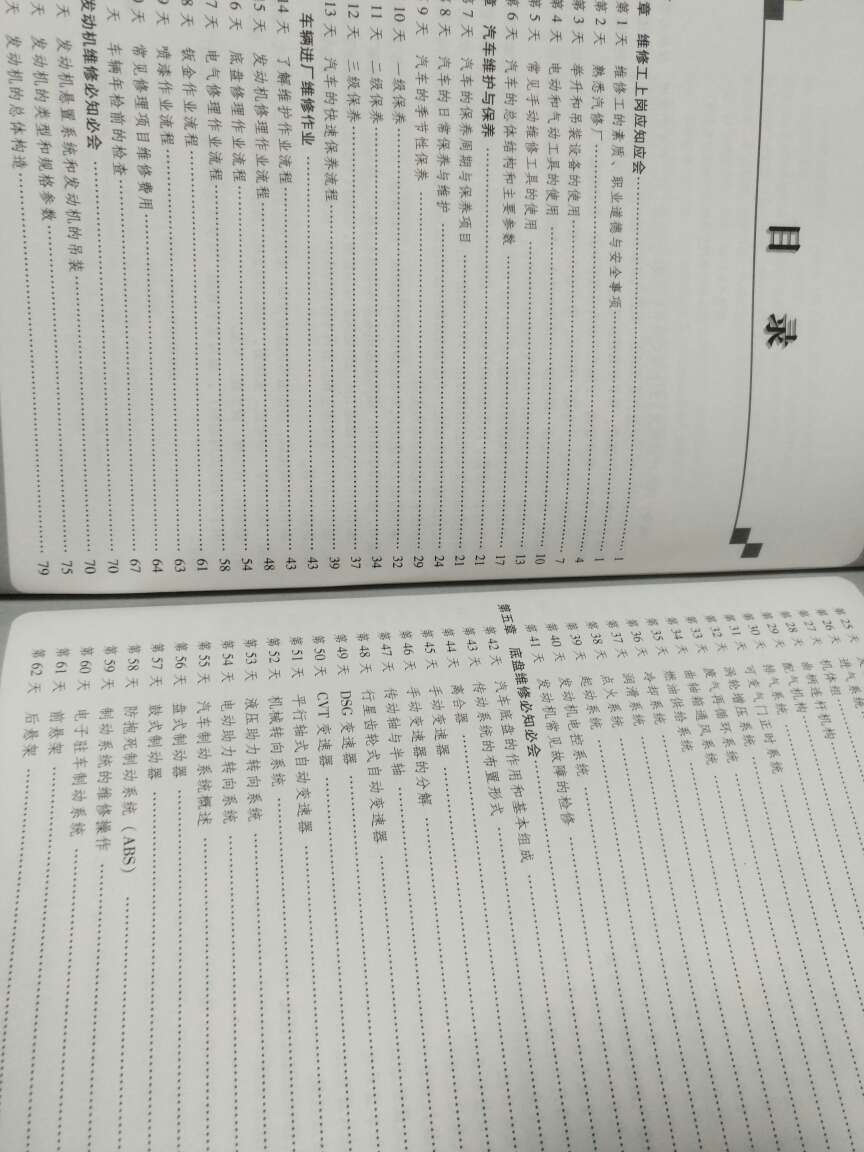 目 录
章 维修工上岗应知应会 …… 1
第1天 维修工的素质、职业道德与安全事项 …… 1
第2天 熟悉汽修厂 …… 4
第3天 举升和吊装设备的使用 …… 7
第4天 电动和气动工具的使用 …… 10
第5天 常见手动维修工具的使用 …… 13
第6天 汽车的总体结构和主要参数 …… 17
章 汽车维护与保养 …… 21
第7天 汽车的保养周期与保养项目 …… 21
第8天 汽车的日常保养与维护 …… 24
9天 汽车的季节性保养 …… 29
10天 一级保养 …… 32
11天 二级保养 …… 34
12天 三级保养 …… 37
13天 汽车的快速保养流程 …… 39
车辆进厂维修作业 …… 43
14天 了解维护作业流程 …… 43
5天 发动机修理作业流程 …… 48
6天 底盘修理作业流程 …… 54
7天 电气修理作业流程 …… 58
8天 钣金作业流程 …… 61
9天 喷漆作业流程 …… 63
0天 常见修理项目维修费用 …… 64
天 车辆年检前的检查 …… 67
发动机维修必知必会 …… 70
天 发动机悬置系统和发动机的吊装 …… 70
天 发动机的类型和规格参数 …… 75
天 发动机的总体构造 …… 79
第25天 进气系统
第26天 机体组
第27天 曲柄连杆机构
第28天 配气机构
第29天 排气系统
第30天 可变气门正时系统
第31天 涡轮增压系统
第32天 废气再循环系统
第33天 曲轴箱通风系统
第34天 燃油供给系统
第35天 冷却系统
第36天 润滑系统
第37天 点火系统
第38天 起动系统
第39天 发动机电控系统
第40天 发动机常见故障的检修
第41天
第五章 底盘维修必知必会
第42天 汽车底盘的作用和基本组成
第43天 传动系统的布置形式
第44天 离合器
第45天 手动变速器
第46天 手动变速器的分解
第47天 传动轴与半轴
第48天 行星齿轮式自动变速器
第49天 DSG变速器
第50天 CVT变速器
第51天 平行轴式自动变速器
第52天 机械转向系统
第53天 液压助力转向系统
第54天 电动助力转向系统
第55天 汽车制动系统概述
第56天 盘式制动器
第57天 鼓式制动器
第58天 防抱死制动系统（ABS）
第59天 制动系统的维修操作
第60天 电子驻车制动系统
第61天 前悬架
第62天 后悬架